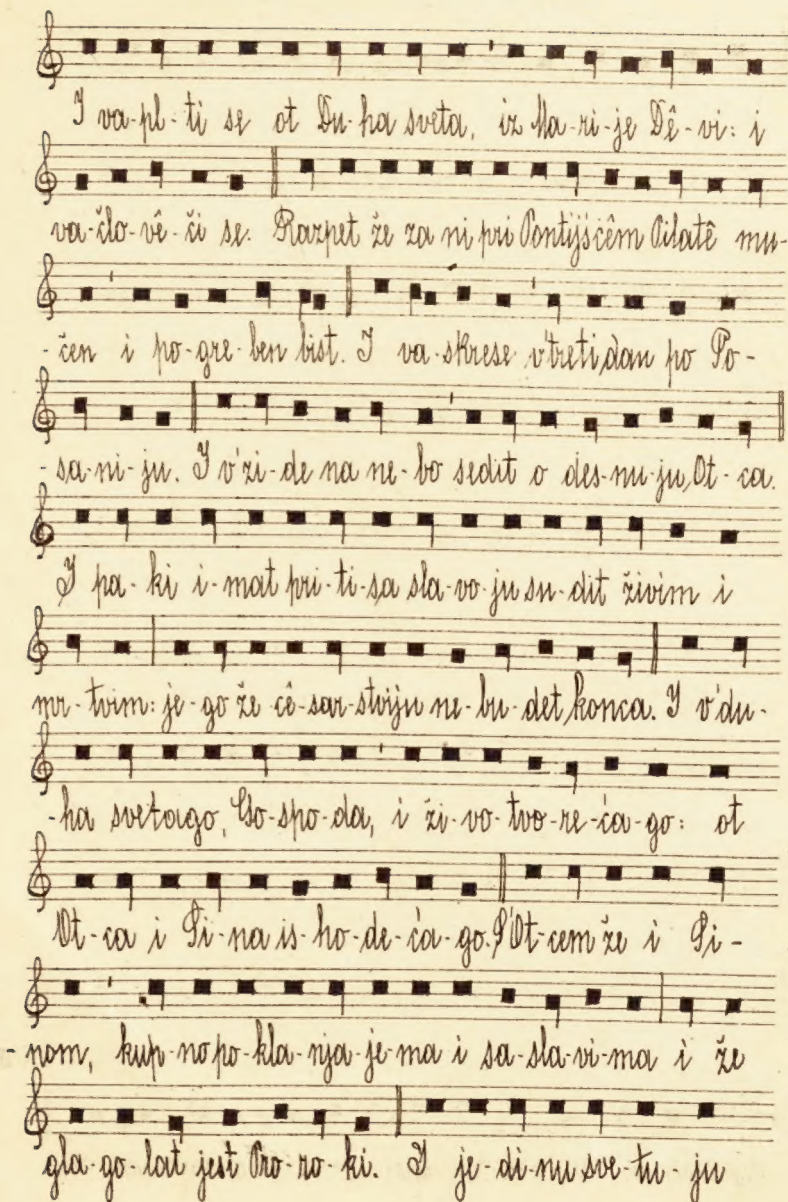 I va-pl-ti se ot Du-ha sveta, iz Ma-ri-je Dê-vi: i
va-člo-vê-či se. Razpet že za ni pri Pontijsćêm Pilatê mu-
-čen i po-gre-ben bist. I va-skrese v'treti dan po Po-
-sa-ni-ju. I v'zi-de na ne-bo sedit o des-nu-ju Ot-ca.
I pa-ki i-mat pri-ti-sa sla-vo-ju su-dit živim i
mr-tvim: je-go že cê-sar-stviju ne-bu-det konca. I v'du-
-ha svetago, Go-spo-da, i ži-vo-tvo-re-ća-go: ot
Ot-ca i Si-na is-ho-de-ća-go. S'Ot-cem že i Si-
-nom, kup-no po-kla-nja-je-ma i sa-sla-vi-ma i že
gla-go-lat jest Pro-ro-ki. I je-di-nu sve-tu-ju